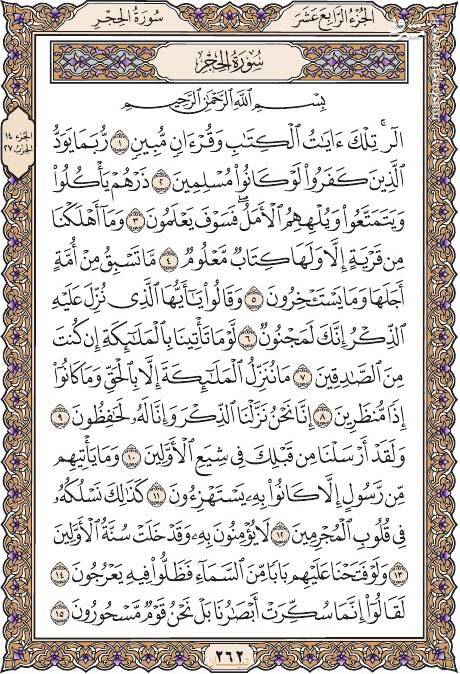 الجزء الرابع عشر
سورة الحجر
سُورَةُ الحِجْرِ
الجزء ١٤
الحزب ٢٧
بِسْمِ ٱللَّهِ ٱلرَّحْمَٰنِ ٱلرَّحِيمِ
الٓرۚ تِلْكَ ءَايَٰتُ ٱلْكِتَٰبِ وَقُرْءَانٍ مُّبِينٍ ١ رُّبَمَا يَوَدُّ
ٱلَّذِينَ كَفَرُوا۟ لَوْ كَانُوا۟ مُسْلِمِينَ ٢ ذَرْهُمْ يَأْكُلُوا۟
وَيَتَمَتَّعُوا۟ وَيُلْهِهِمُ ٱلْأَمَلُۖ فَسَوْفَ يَعْلَمُونَ ٣ وَمَآ أَهْلَكْنَا
مِن قَرْيَةٍ إِلَّا وَلَهَا كِتَابٌ مَّعْلُومٌ ٤ مَّا تَسْبِقُ مِنْ أُمَّةٍ
أَجَلَهَا وَمَا يَسْتَـْٔخِرُونَ ٥ وَقَالُوا۟ يَٰٓأَيُّهَا ٱلَّذِى نُزِّلَ عَلَيْهِ
ٱلذِّكْرُ إِنَّكَ لَمَجْنُونٌ ٦ لَّوْ مَا تَأْتِينَا بِٱلْمَلَٰٓئِكَةِ إِن كُنتَ
مِنَ ٱلصَّٰدِقِينَ ٧ مَا نُنَزِّلُ ٱلْمَلَٰٓئِكَةَ إِلَّا بِٱلْحَقِّ وَمَا كَانُوٓا۟
إِذًا مُّنظَرِينَ ٨ إِنَّا نَحْنُ نَزَّلْنَا ٱلذِّكْرَ وَإِنَّا لَهُۥ لَحَٰفِظُونَ ٩
وَلَقَدْ أَرْسَلْنَا مِن قَبْلِكَ فِى شِيَعِ ٱلْأَوَّلِينَ ١٠ وَمَا يَأْتِيهِم
مِّن رَّسُولٍ إِلَّا كَانُوا۟ بِهِۦ يَسْتَهْزِءُونَ ١١ كَذَٰلِكَ نَسْلُكُهُۥ
فِى قُلُوبِ ٱلْمُجْرِمِينَ ١٢ لَا يُؤْمِنُونَ بِهِۦ وَقَدْ خَلَتْ سُنَّةُ ٱلْأَوَّلِينَ
١٣ وَلَوْ فَتَحْنَا عَلَيْهِم بَابًا مِّنَ ٱلسَّمَآءِ فَظَلُّوا۟ فِيهِ يَعْرُجُونَ ١٤
لَقَالُوٓا۟ إِنَّمَا سُكِّرَتْ أَبْصَٰرُنَا بَلْ نَحْنُ قَوْمٌ مَّسْحُورُونَ ١٥
٢٦٢